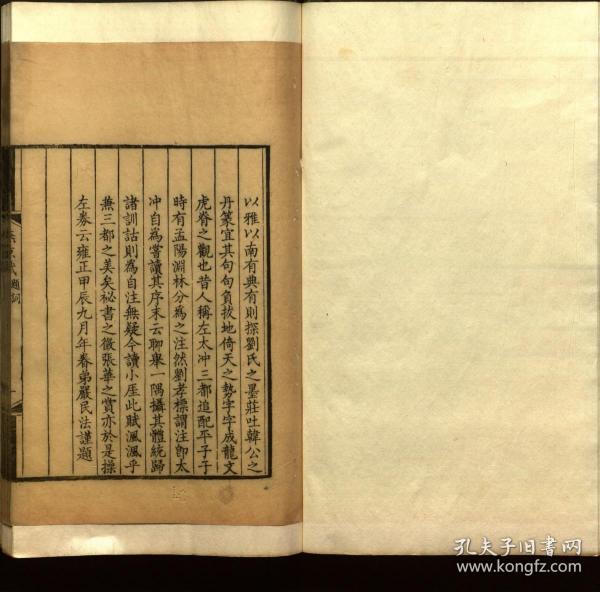 以雅以南有典有則探劉氏之墨莊吐韓公之
丹篆宜其句句負拔地倚天之勢字字成龍文
虎脊之觀也昔人稱左太冲三都追配平子子
時有孟陽淵林分為之注然劉孝標謂注即太
冲自為嘗讀其序末云聊舉一隅攝其體統歸
諸訓詁則為自注無疑今讀小厓此賦渢渢乎
兼三都之美矣祕書之徵張華之賞亦於是操
左券云雍正甲辰九月年眷弟嚴民法謹題
題詞
孔夫子旧书网
www.kongfz.com